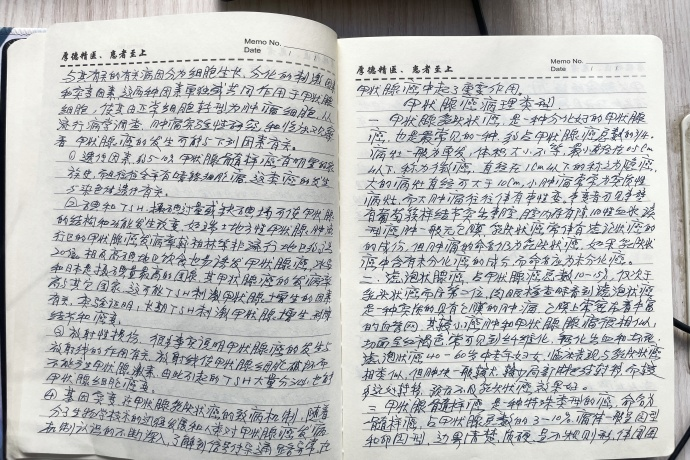 厚德精医、惠者至上
Memo No.
Date
与其有关的有关病因分为细胞生长、分化的刺激因
和突变因素,这两种因素单独或共同作用于甲状腺
细胞,使其由正常细胞转型为肿瘤细胞,从
流行病学调查、肿瘤实验性研究和临床观察
看 甲状腺癌的发生可能与下列因素有关。
① 遗传因素,约5-10% 甲状腺髓样癌有明显的家
族史,
5染色体遗传有关。
② 碘和TSH 摄碘过量或缺碘均可使甲状腺
的结构和功能发生改变,如瑞士地方性甲状腺肿流
行区的甲状腺癌发病率较柏林等非流行地区高出
20倍。相反高碘饮食也易诱发甲状腺癌,冰岛
和日本是摄碘量最高的国家,其甲状腺癌的发病率
高与其它国家。这可能TSH刺激甲状腺增生的因素
有关。实验证明,长期TSH刺激甲状腺增生,形成
结节和癌变。
③ 放射性损伤,很多事实说明甲状腺癌的发生与
放射线的作用有关。放射线使甲状腺细胞
不能分甲状腺激素,由此引起的TSH大量分泌,也
甲状腺细胞癌变。
④ 基因突变 在甲状腺乳头状癌的致病机制,随着
分子生物学技术的进程发展和人类对甲状腺癌发病
机制认识的不断深入,了解到信号传导通路异常,在
厚德精医、惠者至上
Memo No.
Date
甲状腺癌中起了重要作用。
甲状腺癌病理类型
一、甲状腺乳头状癌,是一种分化好的甲状腺
癌,也是最常见的一种,约占甲状腺癌总数的3/4。
病灶一般为单发,体积大小不等,最小直径在0.5cm
以下,称为微癌,直径在1cm以下的称之为隐癌,
大的病灶直径可大于10cm,小肿瘤常常为实质性
病灶,而大肿瘤往往伴有囊性变,
有葡萄样结节突出囊腔,腔内存有陈旧性血液,该
型癌肿一般无包膜,乳头状癌常伴有滤泡状癌的
的成份,但肿瘤的命名仍为乳头状癌,如果乳头状
癌中含有未分化癌的成份,而命名应为未分化癌。
二、滤泡状腺癌,占甲状腺癌总数10-15%,仅次于
乳头状癌而居第二位,肉眼检查时看到滤泡状癌
是一种实质的具有包膜的肿瘤,包膜上常密布着丰富
的血管网,其较小癌肿和甲状腺腺瘤很相似,
切面呈红褐色,常可见到纤维化、钙化出血和坏死,
滤泡状癌40-60岁中老年妇女,临床表现与乳头状癌
相类似,但肿块一般较大,较少局部淋巴结转移而较

三、甲状腺髓样癌,是一种特殊类型的癌,命名为
髓样癌,占甲状腺总数的3-10%,癌体一般呈圆型
和卵圆型,边界清楚,质硬,呈不规则形,伴周围